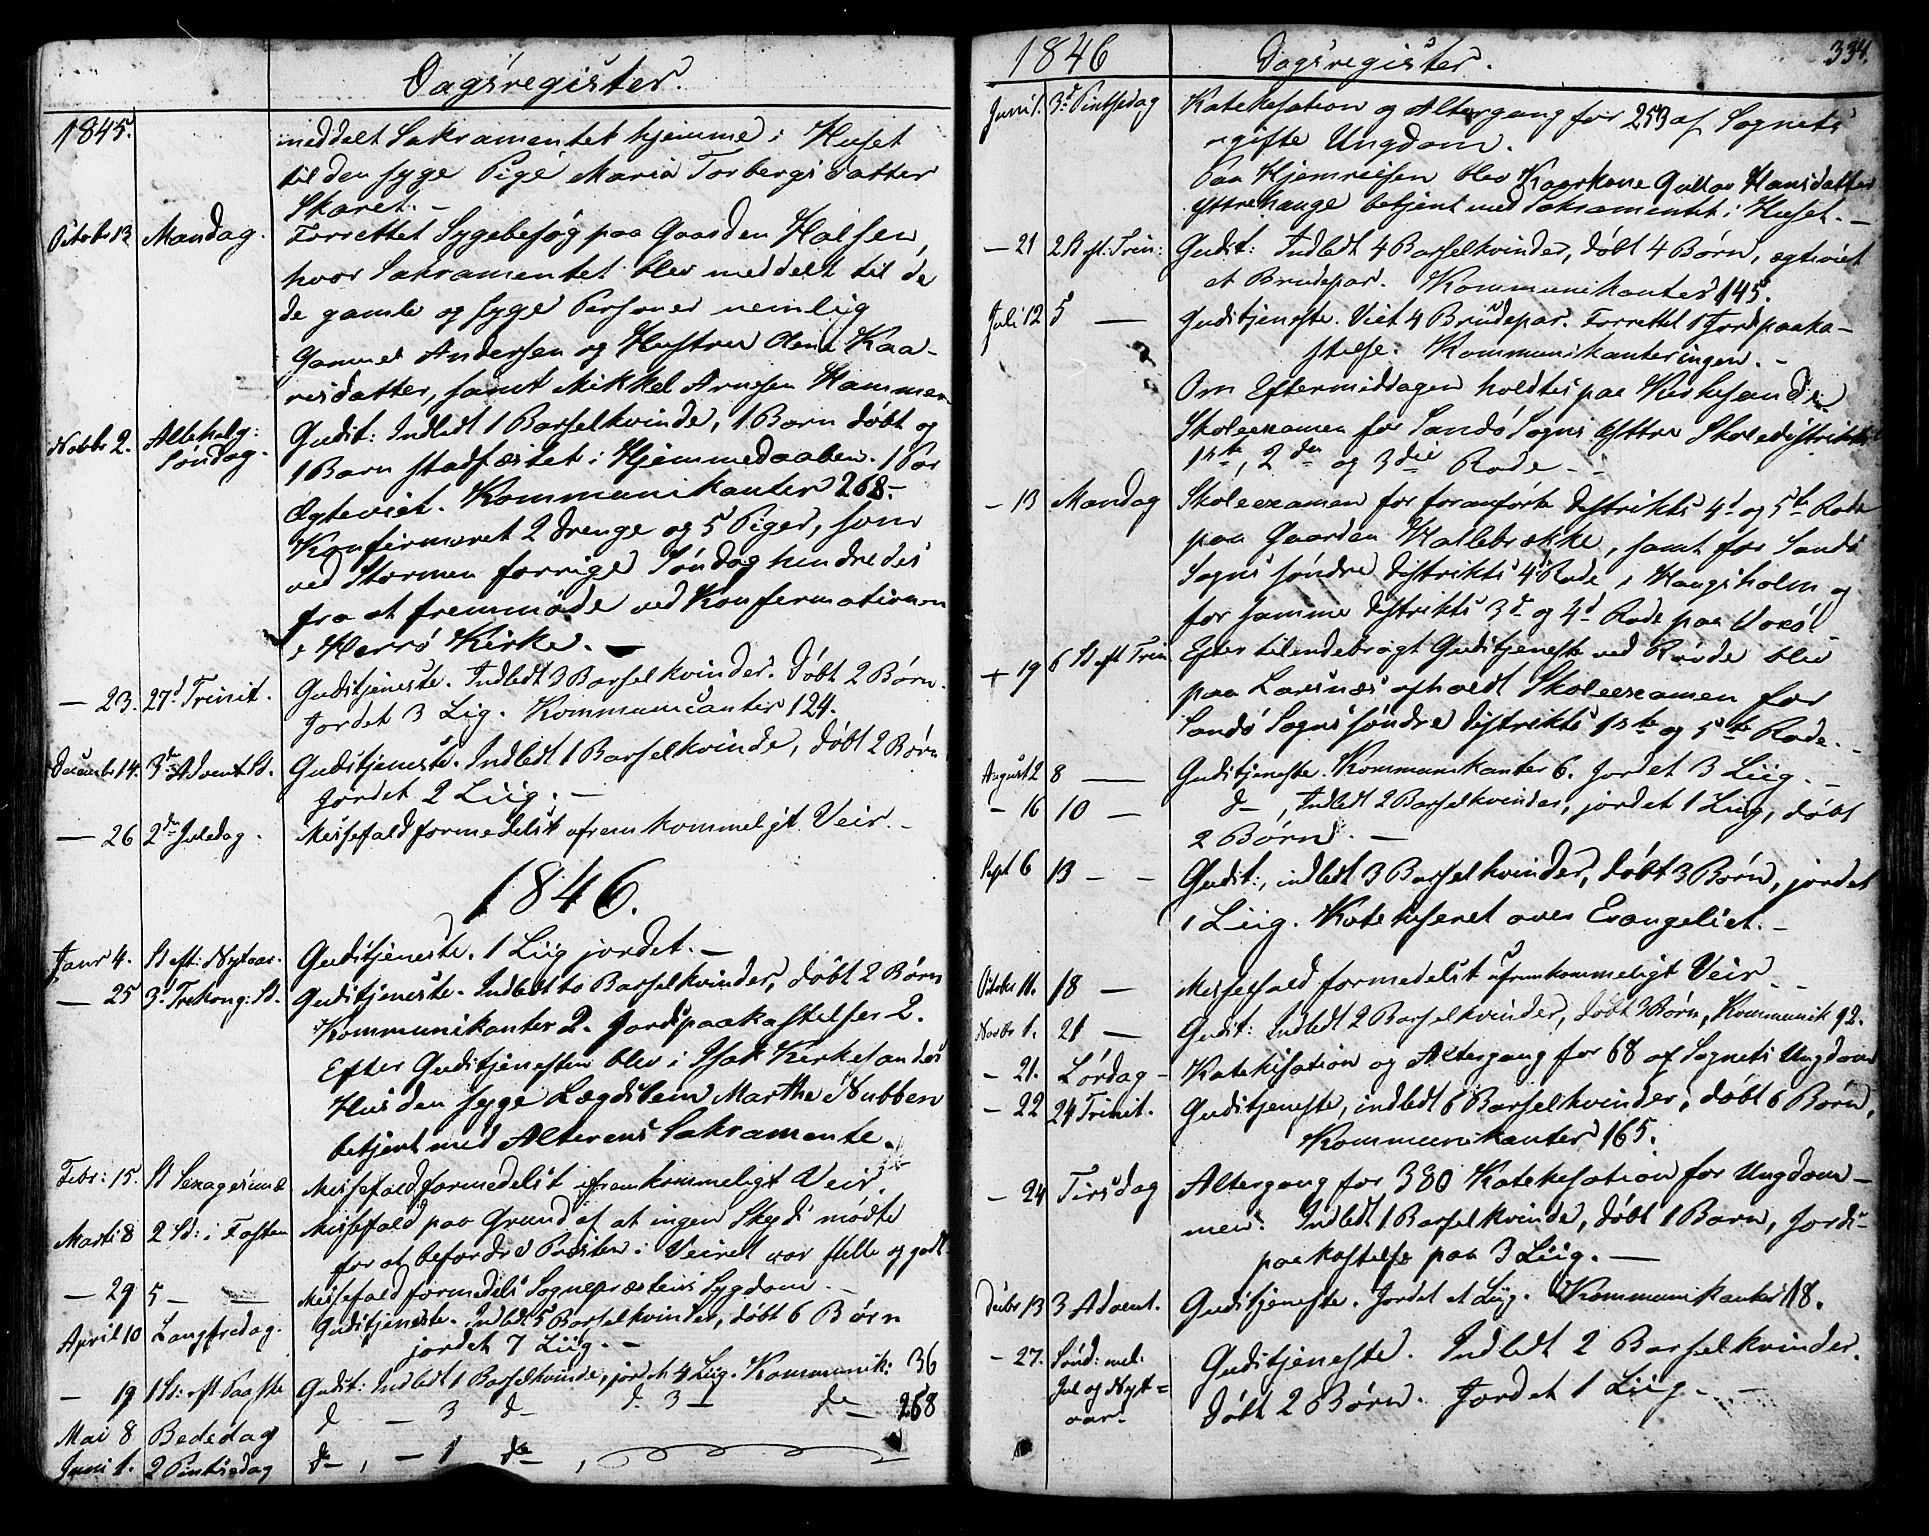 Dagsregister.
1845.
meddelt Sakramentet hjemme i Huset
til den syge Pige Maria Torbergsdatter
Skaret. –
Octobr 13 Mandag. Forrettet Sygebesøg paa Gaarden Halsen,
hvor Sakramentet blev meddelt til de
de gamle og syge Personer nemlig
Gammel Andersen og Hustru Olena Kaa-
risdatter, samt Mikkel Arnesen Hammer
Novbr 2. Allehelg: Søndag. Gudst: Indledt 1 Barselkvinde, 1 Barn døbt og
1 Barn stadfæstet i Hjemmedaaben. 1 Par
Ægteviet. Kommunikanter 268. –
Konfirmeret 2 Drenge og 5 Piger, som
ved Stormen forrige Søndag hindredes
fra at fremmøde ved Konfirmationen
i Herrø Kirke. –
– 23. 27d Trinit. Gudstjeneste. Indledt 3 Barselkvinder. Døbt 2 Børn.
Jordet 3 Lig. Kommunicanter 124.
December 14. 3die Advent S. Gudstjeneste. Indledt 1 Barselkvinde, døbt 2 Børn
Jordet 2 Liig. –
– 26 2den Juledag. Messefald formedelst ufremkommeligt Veir. –
1846.
Janr 4. S. eft: Nytaar. Gudstjeneste. 1 Liig jordet. –
– 25 3d Trekong: S. Gudstjeneste. Indledt to Barselkvinder, døbt 2 Børn
Kommunikanter 2. Jordspaakastelser 2.
Efter Gudstjenesten blev i Isak Kirkesandes
Hus den syge Lægdslem Marthe Nubben
betjent med Alterens Sakramente.
Febr: 15. S. Sexagesimæ Messefald formedelst ufremkommeligt Veir.
Marts 8 2 S: i Fasten Messefald paa Grund af at ingen Skyds mødte
for at befordre Præsten i Veiret var stille og godt
– 29 5 – – Messefald formedelst Sognepræstens Sygdom. –
April 10 Langfredag. Gudstjeneste. Indledt 5 Barselkvinder, døbt 6 Børn
jordet 7 Liig. –
– 19 1 S: eft Paaske Gudst: Indledt 1 Barselkvinde, jordet 4 Liig. Kommunik: 36
Mai 8 Bededag d – 3 d– d. 3 – do – 268
Juni 1. 2 Pintsedag do , – 1 do ,
1846 Dagsregister. 334.
Juni 1. 3d Pintsedag Katekesation og Altergang for 253 af Sognets
ugifte Ungdom.
Paa Hjemreisen blev Kaarkone Gullov Hansdatter
Yttrehauge betjent med Sakramentet i Huset. –
– 21 2 S eft. Trin: Gudst: Indledt 4 Barselkvinder, døbt 4 Børn, ægteviet
et Brudepar. Kommunikanter 145.
Juli 12 5 – Gudstjeneste. Viet 4 Brudepar. Forrettet 1 Jordpaaka-
stelse. Kommunikanter ingen. –
Om Eftermiddagen holdtes paa Kirkesande
Skoleexamen for Sandø Sogns Yttre Skoledistrikts
1ste, 2den og 3die Rode –
– 13 Mandag Skoleexamen for foranførte Distrikts 4d og 5te Rode
paa Gaarden Hallebrække, samt for Sandø
Sogns søndre Distrikts 4d Rode i Haugsholm og
for samme Distrikts 3d og 4d Rode paa Voxø.
+ 19 6 S eft Trin Efter tilendebragt Gudstjeneste ved Røvde blev
paa Larsnæs afholdt Skoleexamen for
Sandø Sogns søndre Distrikts 1ste og 5te Rode. –
August 2 8 – Gudstjeneste. Kommunikanter 6. Jordet 3 Liig. –
– 16 10 – d– , Indledt 2 Barselkvinder, jordet 1 Liig, døbt
2 Børn. –
Sept 6 13 – – Gudst:, indledt 3 Barselkvinder, døbt 3 Børn, jordet
1 Liig. Kateheseret over Evangeliet. –
Octobr 11. 18 – Messefald formedelst ufremkommeligt Veir. –
Novbr 1. 21 – Gudst: Indledt 2 Barselkvinder, døbt 3 Børn, Kommunik 92.
– 21. Lørdag – Katekisation og Altergang for 68 af Sognets Ungdom
– 22 24 Trinit. Gudstjeneste, indledt 6 Barselkvinder, døbt 6 Børn,
Kommunikanter 165.
– 24 Tirsdag Altergang for 380 Katekesation for Ungdom-
men. Indledt 1 Barselkvinde, døbt 1 Barn, Jords-
paakastelse paa 3 Liig. –
Decbr 13 3 Advent. Gudstjeneste. Jordet et Liig. Kommunikanter 18.
– 27. Sønd: mel: Gudstjeneste. Indledt 2 Barselkvinder.
Jul og Nyt= Døbt 2 Børn. Jordet 1 Liig. –
aar.